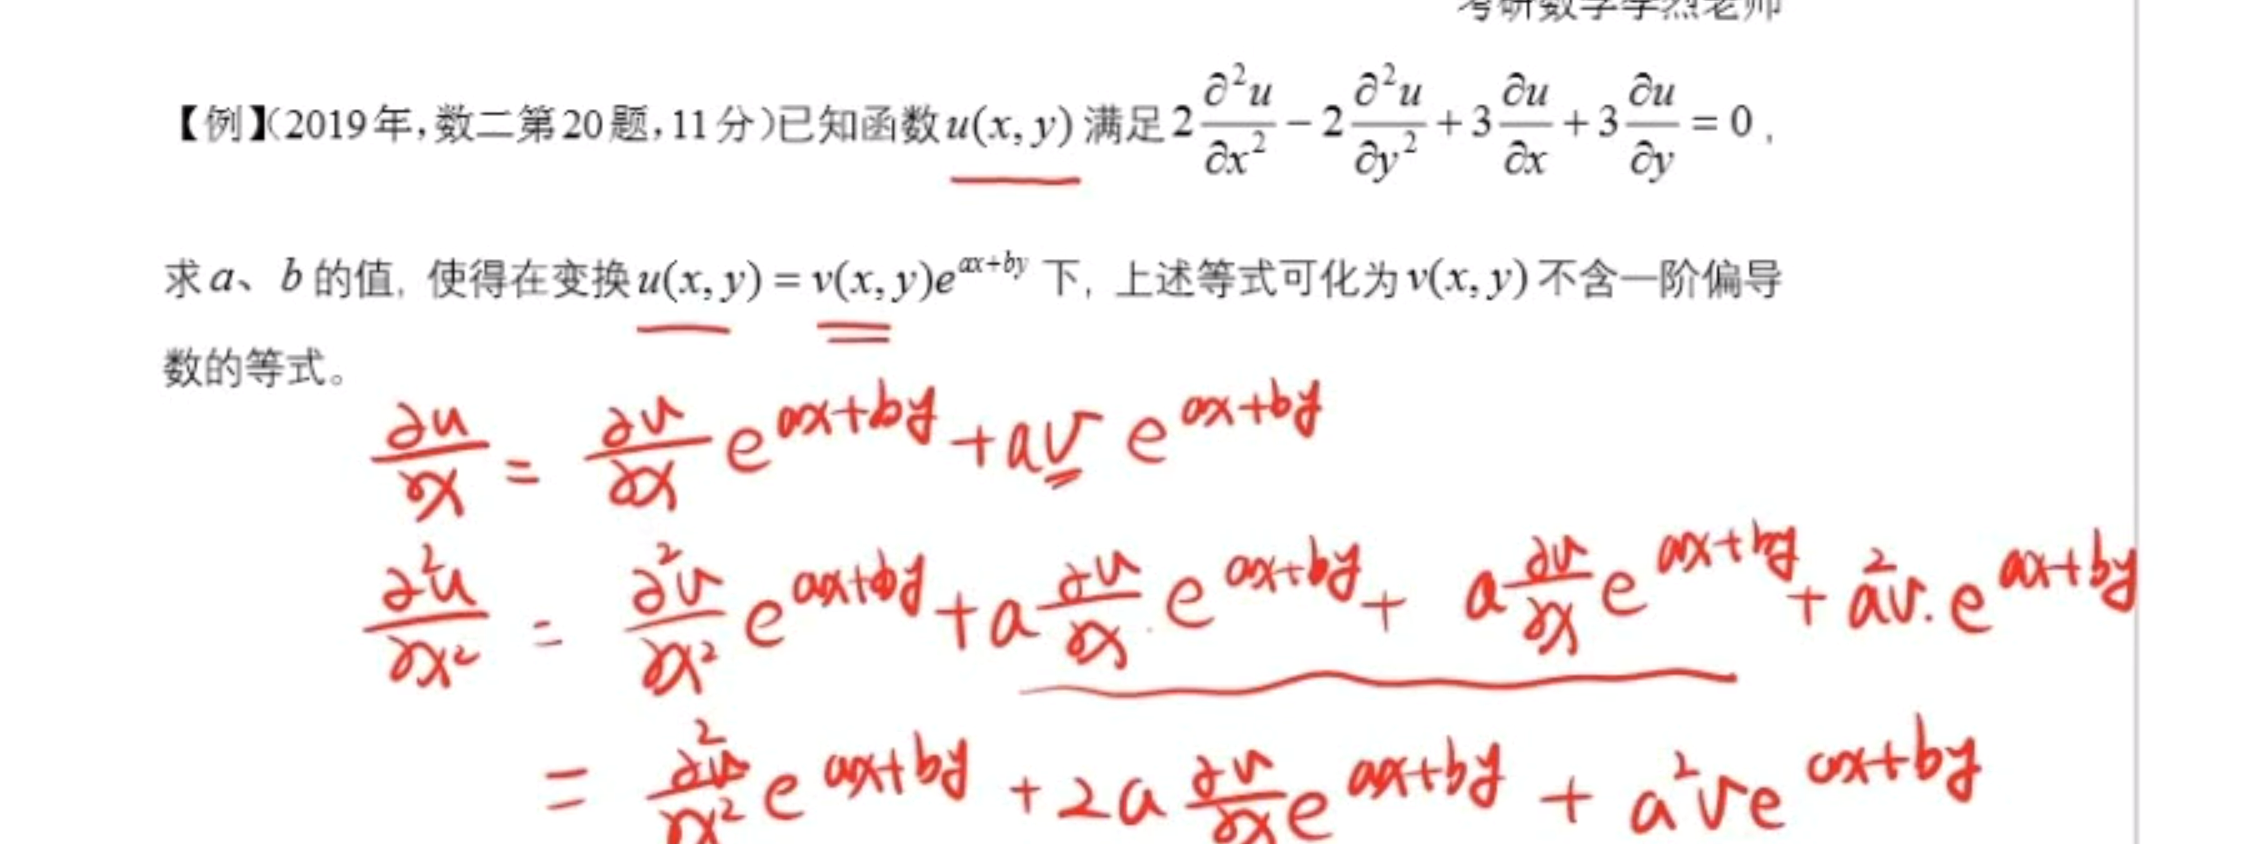 考研数学李杰老师
【例】(2019年,数二第20题,11分)已知函数u(x, y)满足2∂²u/∂x² − 2∂²u/∂y² + 3∂u/∂x + 3∂u/∂y = 0,
求a、b的值, 使得在变换u(x, y) = v(x, y)e^{ax+by}下, 上述等式可化为v(x, y)不含一阶偏导
数的等式。
∂u/∂x = ∂v/∂x e^{ax+by} + av e^{ax+by}
∂²u/∂x² = ∂²v/∂x² e^{ax+by} + a ∂v/∂x · e^{ax+by} + a ∂v/∂x e^{ax+by} + a²v · e^{ax+by}
= ∂²v/∂x² e^{ax+by} + 2a ∂v/∂x e^{ax+by} + a²v e^{ax+by}